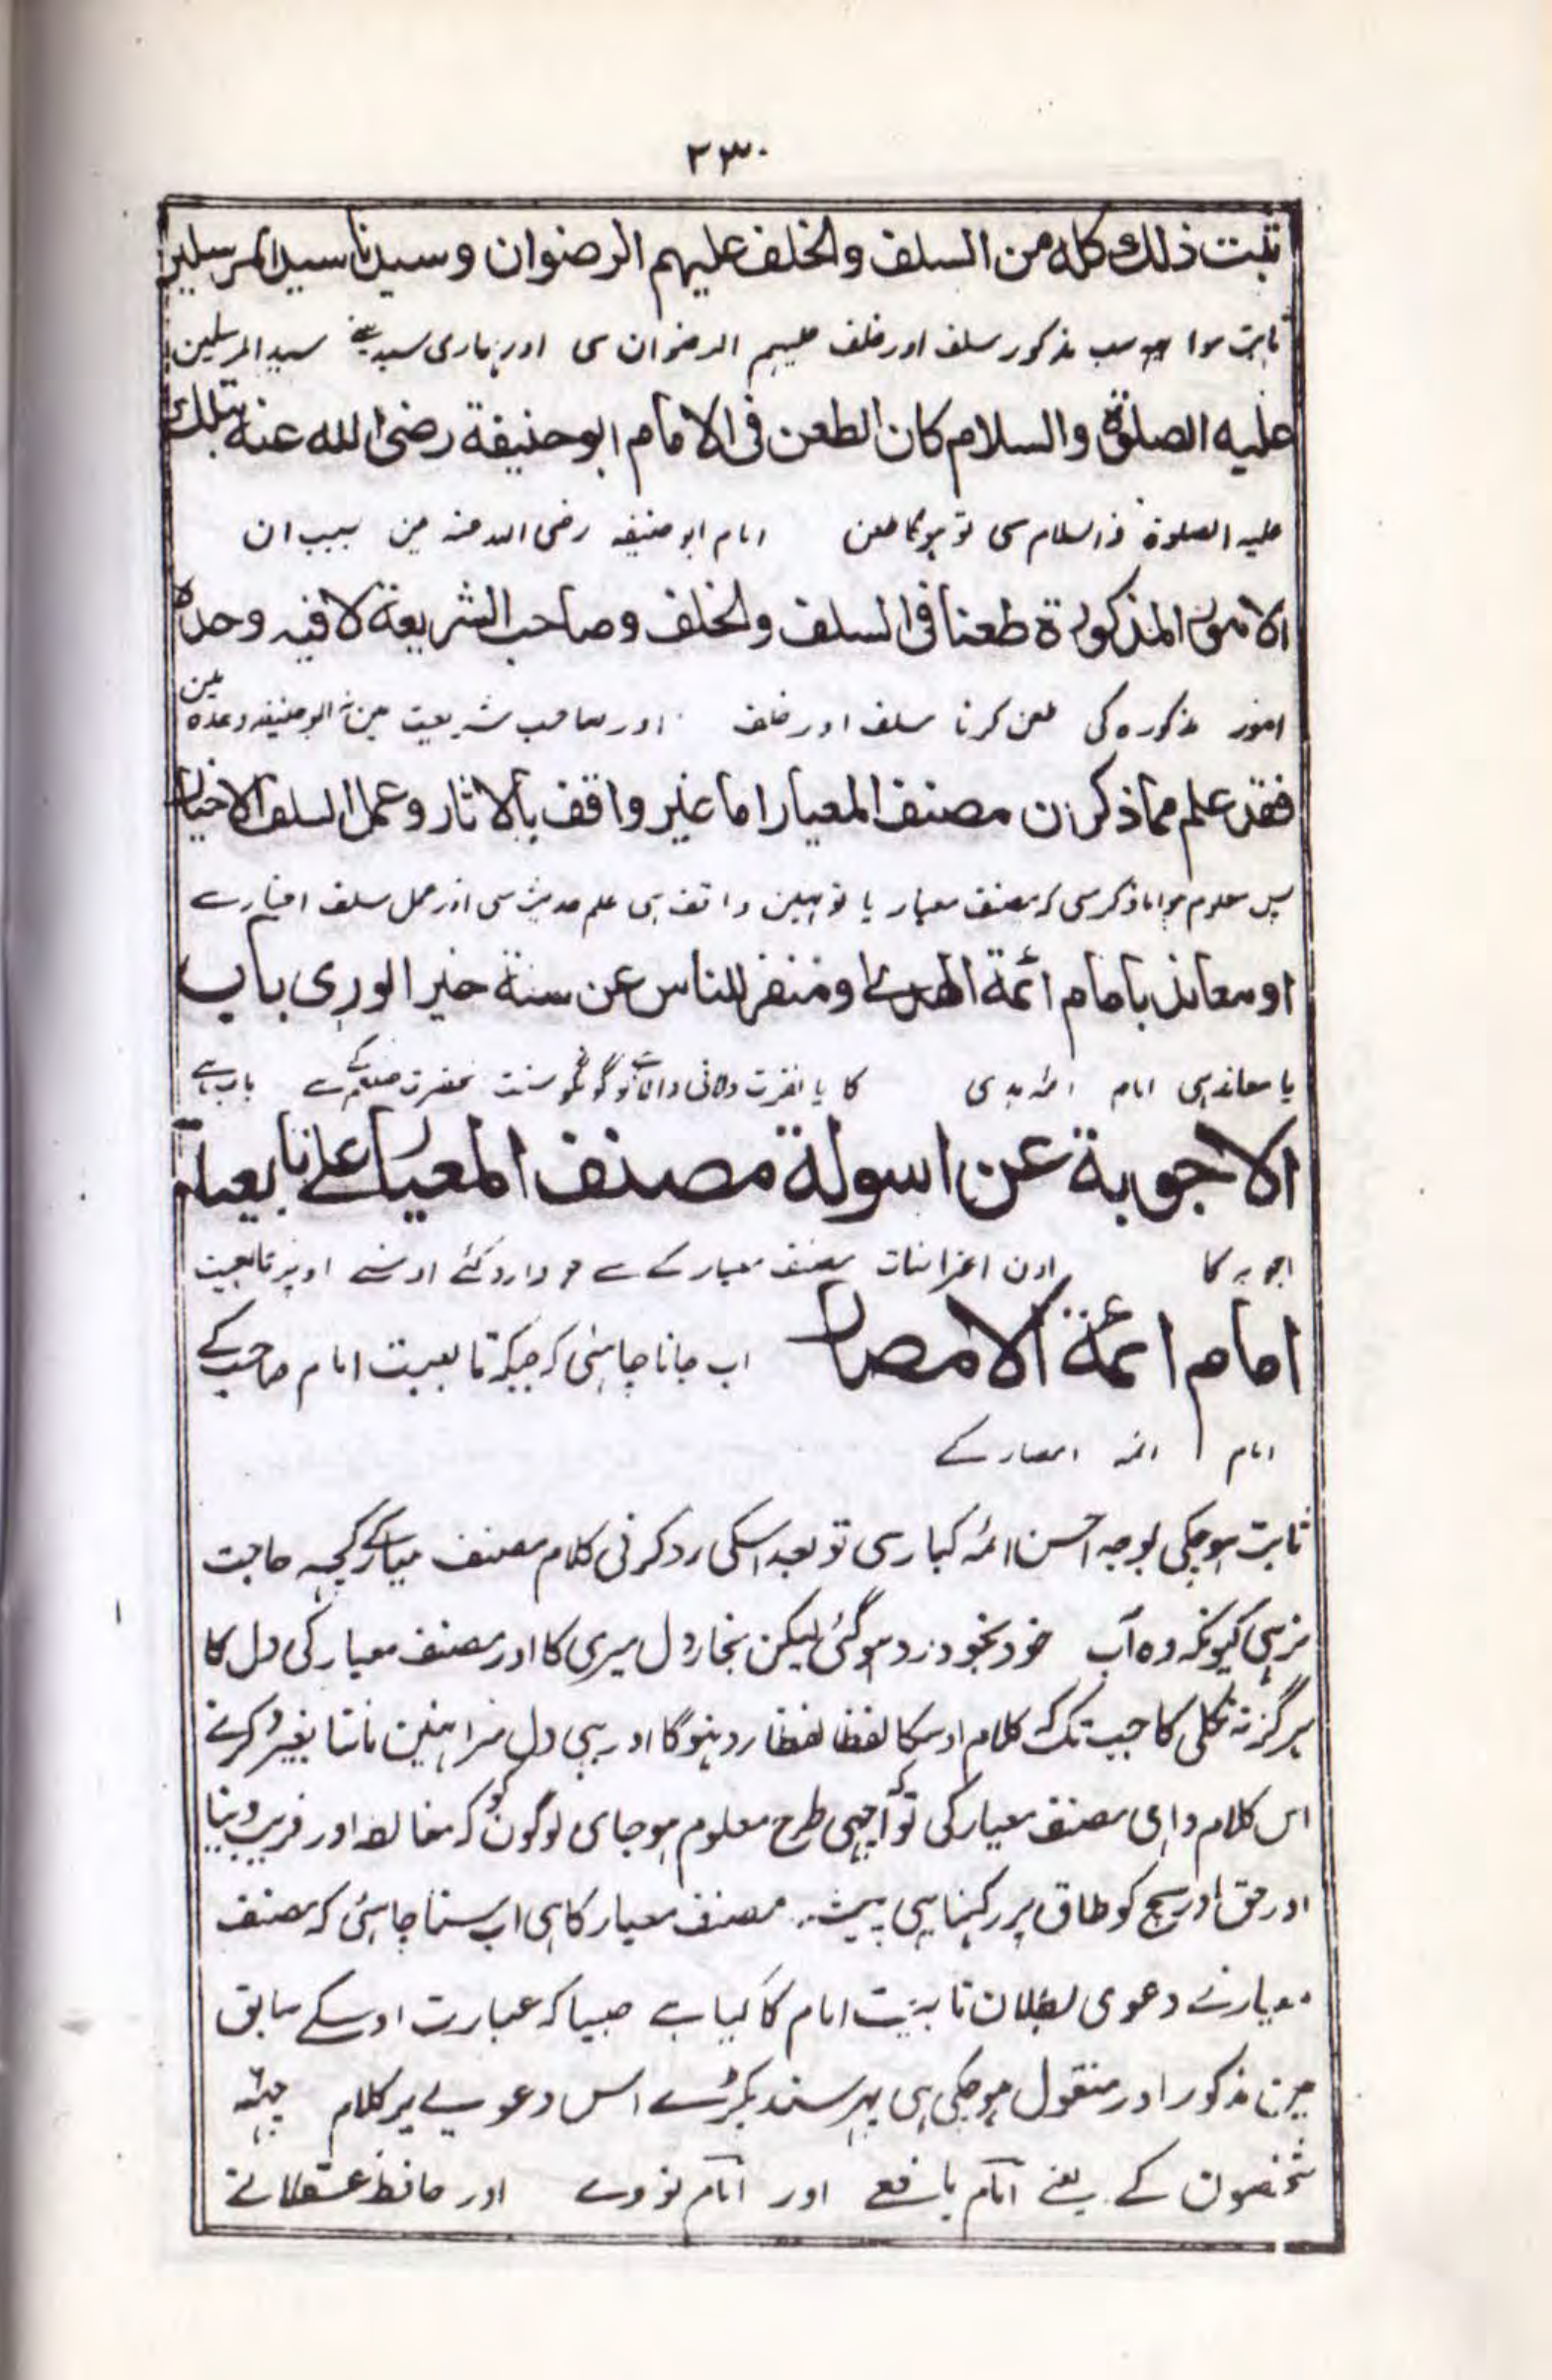 ٢٣٠
ثبت ذلك كله من السلف والخلف عليهم الرضوان وسيدنا سيد المرسلين
ثابت ہوا سب مذکور سلف اور خلف علیہم الرضوان سی اور ہماری سید سید المرسلین
عليه الصلوة والسلام كان الطعن فى الامام ابوحنيفة رضى الله عنه بتلك
علیہ الصلوۃ والسلام سی تو ہوگا طعن امام ابو حنیفہ رضی اللہ عنہ مین بسبب ان
الامور المذكورة طعنا فى السلف والخلف وصاحب الشريعة لا فيه وحده
امور مذکورہ کی طعن کرنا سلف اور خلف اور صاحب شریعت مین نہ ابوحنیفہ وحدہ مین
فقد علم مما ذكر ان مصنف المعيار اما غير واقف بالاثار وعمل السلف الاخيار
پس معلوم ہوا ماذکر سی کہ مصنف معیار یا تو نہین واقف ہی علم حدیث سی اور عمل سلف اخیار سے
او معاند بامام ائمة الهدى او منفر للناس عن سنة خير الورى باب
یا معاند ہی امام ائمہ ہدی کا یا نفرت دلانی والا ہے لوگونکو سنت حضرت صلعم کے سے باب ہے
الاجوبة عن اسولة مصنف المعيار على تابعية
اجوبہ کا اون اعتراضات مصنف معیار کے سے جو وارد کئے اوسنے اوپر تابعیت
امام ائمة الامصار اب جانا چاہئی کہ جبکہ تابعیت امام صاحب کے
امام ائمہ امصار کے
ثابت ہوچکی بوجہ احسن ائمہ کبار سی تو بعد اسکی رد کرنی کلام مصنف معیار کے کچہہ حاجت
نرہی کیونکہ وہ آپ خود بخود رد ہوگئی لیکن بخار دل میری کا اور مصنف معیار کی دل کا
ہرگز نہ نکلی گا جب تک کہ کلام اوسکا لفظا لفظا رد نہوگا اور یہی دل میرا نہین مانتا بغیر رد کرنے
اس کلام واہی مصنف معیار کی تو کہ اچھی طرح معلوم ہوجای لوگون کو کہ مغالطہ اور فریب دینا
اور حق اور سچ کو طاق پر رکہنا یہی پیشہ مصنف معیار کا ہی اب سننا چاہئی کہ مصنف
معیار نے دعوی بطلان تابعیت امام کا کیا ہے جیسا کہ عبارت اوسکے سابق
مین مذکور اور منقول ہوچکی ہی پہر سند پکڑے اس دعوے پر کلام چہہ
شخصون کے یعنے امام یافعے اور امام نووے اور حافظ عسقلانے